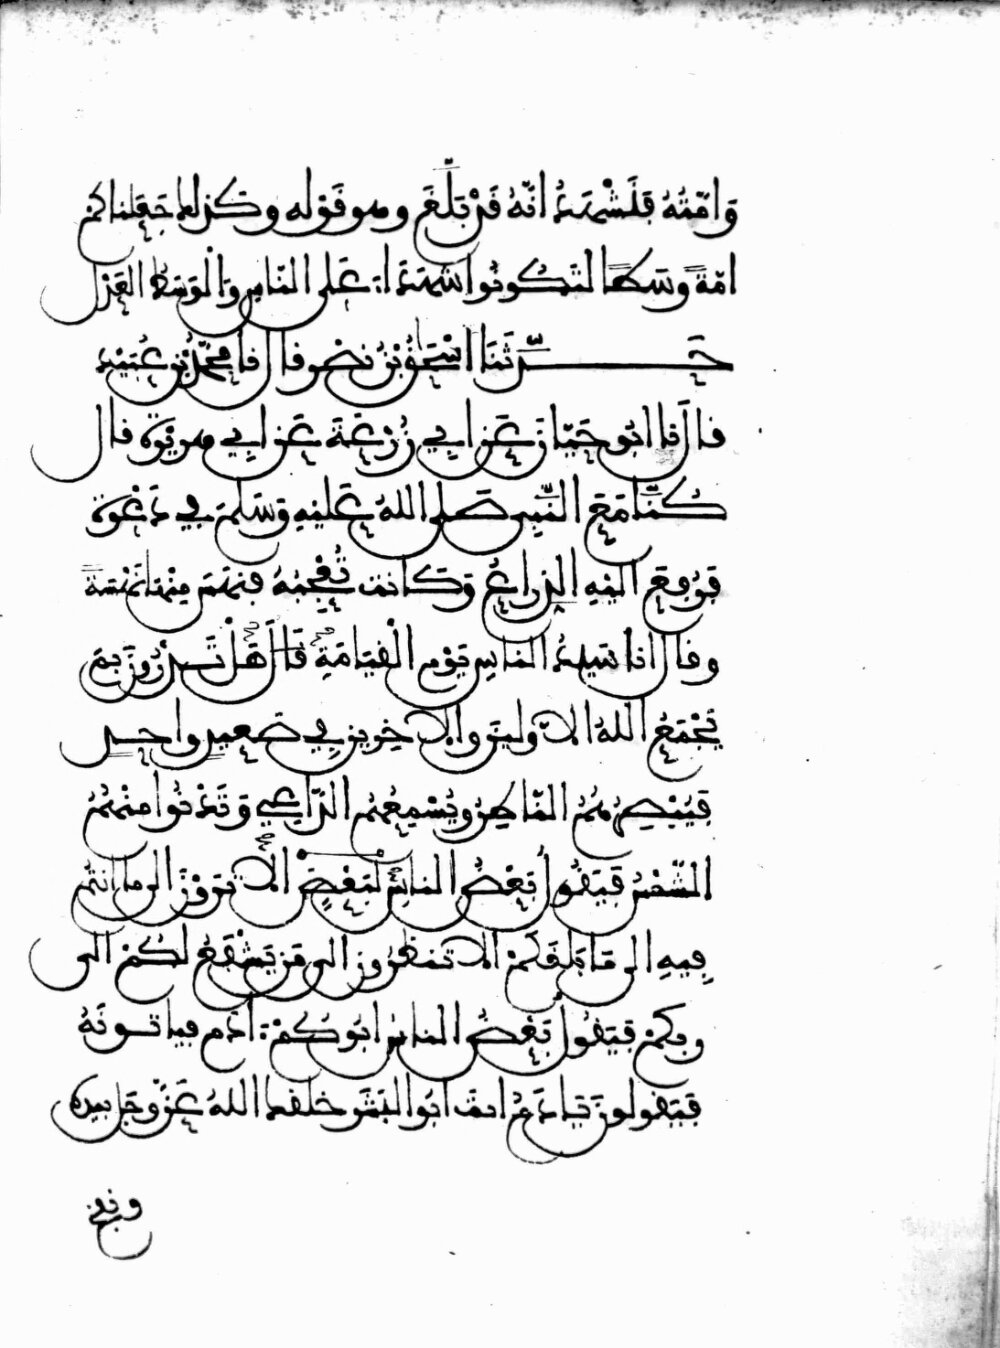 وَامَّتُهُ فَلَنَشْهَدُ انَّهُ قَدْ بَلَّغَ وهو قَوْله وكَذلك جَعَلناكم
امّةً وَسَطًا لتَكُونُوا شُهَدَاءَ عَلى النّاسِ وَالْوَسَطُ العَدْل
حَدَّثَنَا اسْحَقُ بْنُ نَصْر قال نا محَمّدُ بْن عُبَيْد
قال نَا ابُو حَيّانَ عَن ابِي زُرْعَةَ عَن ابِي هريْرة قال
كُنّا مَعَ النّبِيِّ صَلى اللهُ عَليْهِ وَسَلمَ فِي دَعْوة
فَرُفِعَ اليْهِ الذِّراعُ وَكَانت تُعْجِبُهُ فنَهَسَ مِنْهَا نَهْسَةً
وقال انا سَيدُ النّاسِ يَوْم الْقيَامَةِ قَالَ هَلْ تَدْرُونَ بمَ
يَجْمَعُ اللهُ الاوّلينَ والاخِرين فِي صَعِيدٍ واحِد
فيُبْصِرُهُمُ النّاظِرُ ويُسْمِعُهُمُ الدّاعِي وَتَدْنُوا منْهُمُ
الشّمْسُ فَيَقُولُ بَعْضُ النّاسِ لبَعْضٍ الَا تَرَوْنَ الى ما انتُم
فِيهِ الى مَا بَلَغَكمْ الا تنظُرُون الى مَن يَشْفَعُ لكُمْ الى
ربكمْ فيَقُولُ بَعْضُ النّاس ابُوكُمْ ءَادَم فياتونَهُ
فَيَقولونَ يَا ءادَمُ انتَ ابُوا البَشَر خلقكَ اللهُ عَزّ وجَل بيَدِه
ونفخ